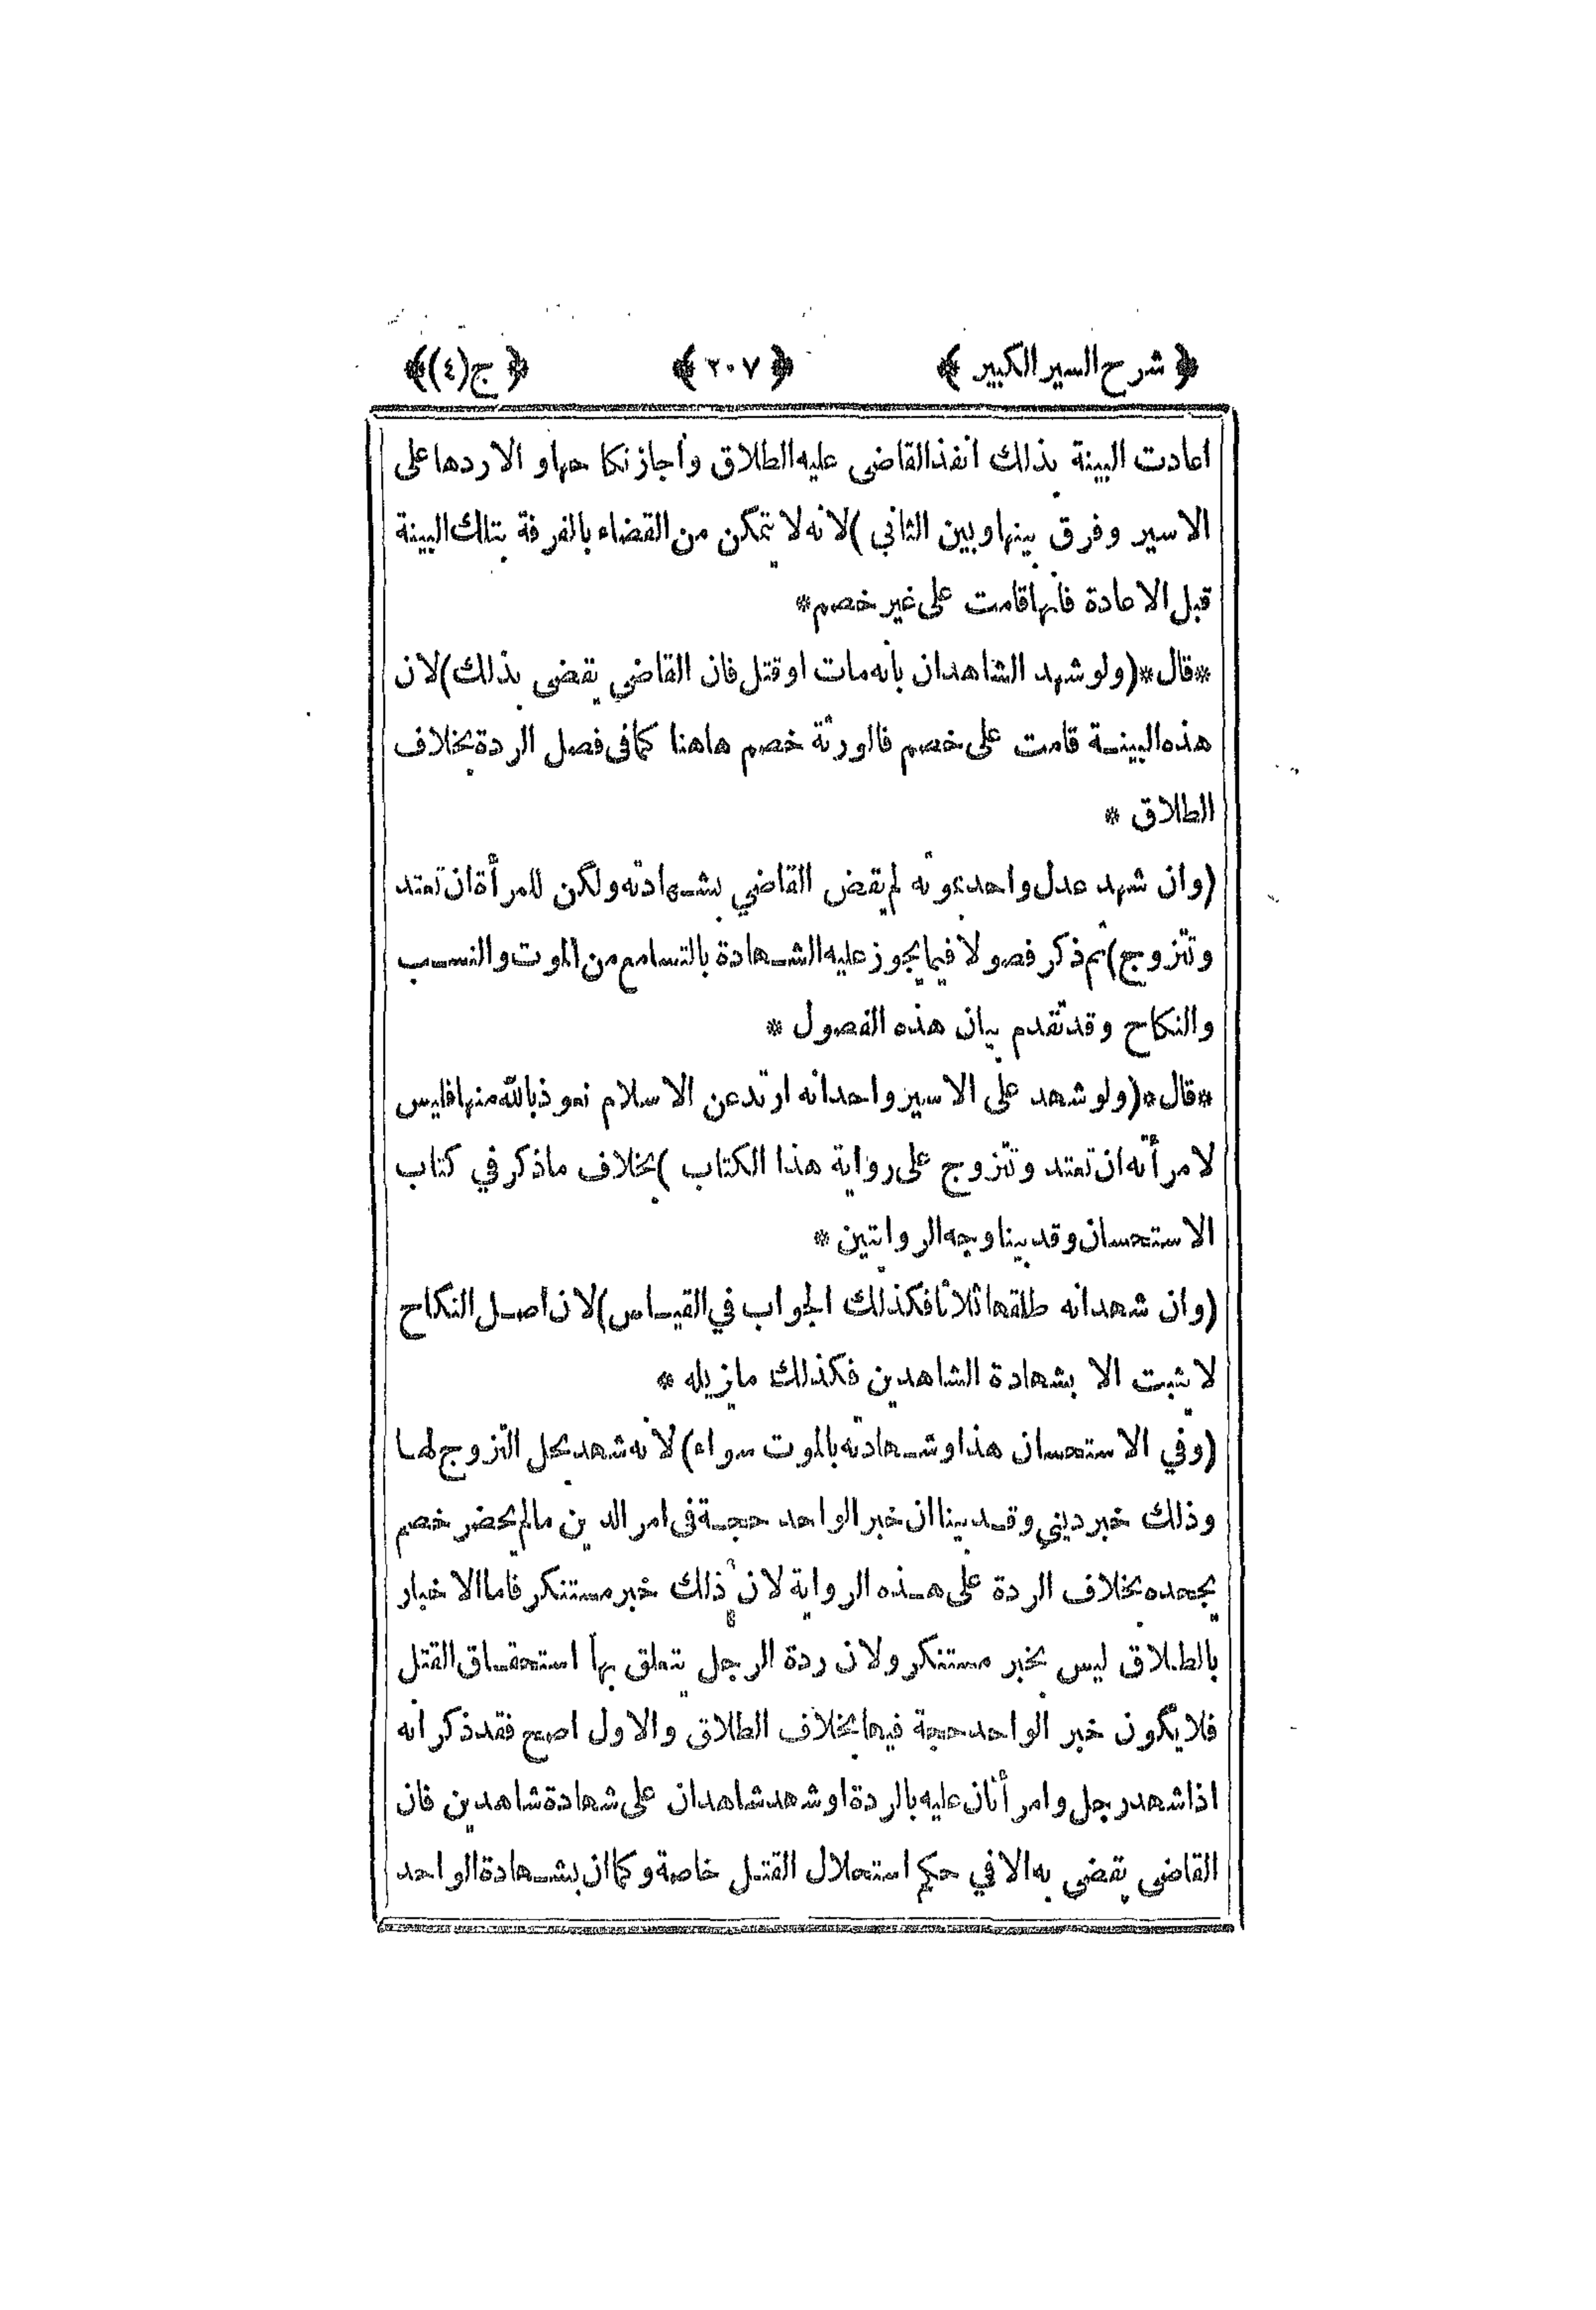 ﴿ شرح السير الكبير ﴾ ﴿ ٢٠٧ ﴾ ﴿ ج(٤) ﴾
اعادت البينة بذلك انفذ القاضي عليه الطلاق وأجاز نكاحها والا ردها على
الاسير وفرق بينها وبين الثاني )لانه لا يتمكن من القضاء بالفرقة بتلك البينة
قبل الاعادة فانها قامت على غير خصم*
*قال*(ولو شهد الشاهدان بأنه مات او قتل فان القاضي يقضي بذلك)لان
هذه البينة قامت على خصم فالورثة خصم هاهنا كما في فصل الردة بخلاف
الطلاق *
(وان شهد عدل واحد بموته لم يقض القاضي بشهادته ولكن للمرأة ان تعتد
وتتزوج)ثم ذكر فصولا فيما يجوز عليه الشهادة بالتسامع من الموت والنسب
والنكاح وقد تقدم بيان هذه الفصول *
*قال*(ولو شهد على الاسير واحد انه ارتد عن الاسلام نعوذ بالله منها فليس
لامرأته ان تعتد وتتزوج على رواية هذا الكتاب )بخلاف ما ذكر في كتاب
الاستحسان وقد بينا وجه الروايتين *
(وان شهد انه طلقها ثلاثا فكذلك الجواب في القياس)لان اصل النكاح
لا يثبت الا بشهادة الشاهدين فكذلك مايزيله *
(وفي الاستحسان هذا وشهادته بالموت سواء)لانه شهد بحل التزوج لها
وذلك خبر ديني وقد بينا ان خبر الواحد حجة في امر الدين مالم يحضر خصم
يجحده بخلاف الردة على هذه الرواية لان ذلك خبر مستنكر فاما الاخبار
بالطلاق ليس بخبر مستنكر ولان ردة الرجل يتعلق بها استحقاق القتل
فلا يكون خبر الواحد حجة فيها بخلاف الطلاق والاول اصح فقد ذكر انه
اذا شهد رجل وامرأتان عليه بالردة او شهد شاهدان على شهادة شاهدين فان
القاضي يقضي به الا في حكم استحلال القتل خاصة وكما ان بشهادة الواحد